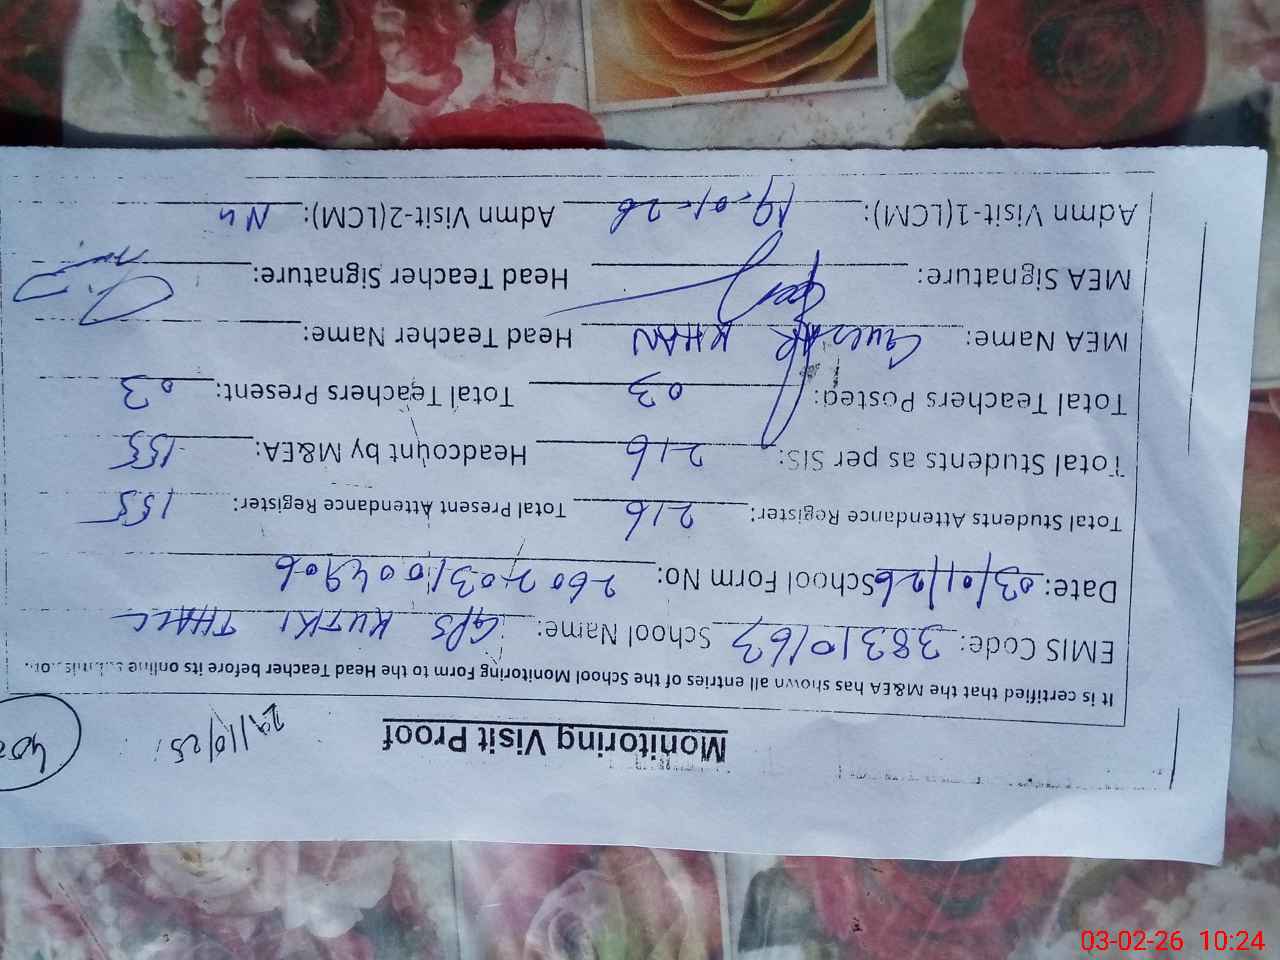 Monitoring Visit Proof
29/10/25
It is certified that the M&EA has shown all entries of the School Monitoring Form to the Head Teacher before its online
EMIS Code: 38310163 School Name: GPS KUTKI THALL
Date: 03/01/26 School Form No: 2602031004906
Total Students Attendance Register: 216 Total Present Attendance Register: 155
Total Students as per SIS: 216 Headcount by M&EA: 155
Total Teachers Posted: 03 Total Teachers Present: 03
MEA Name: GULZAR KHAN Head Teacher Name:
MEA Signature: Head Teacher Signature:
Admn Visit-1(LCM): 19-01-26 Admn Visit-2(LCM):
03-02-26 10:24